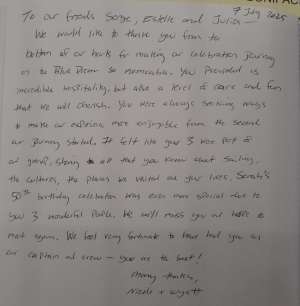 7 July 2025
To our friends Serge, Estelle and Julien -
We would like to thank you from the
bottom of our hearts for making our celebration journey
on the Blue Dream so memorable. You provided us
incredible hospitality, but also a level of care and fun
that we will cherish. You were always seeking ways
to make our experience more enjoyable from the second
our journey started. It felt like you 3 were part of
our family, sharing all that you know about sailing,
the cultures, the places we visited and your lives. Sarah's
50th birthday celebration was even more special due to
you 3 wonderful people. We will miss you and hope to
meet again. We feel very fortunate to have had you as
our captain and crew - you are the best!
Many thanks,
Nicole + Wyatt